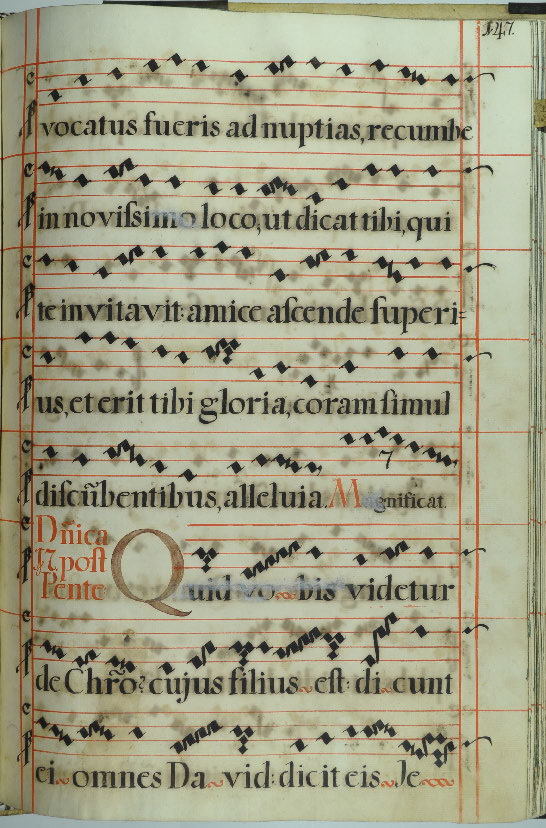 147.
vocatus fueris ad nuptias, recumbe
in noviſsimo loco, ut dicat tibi, qui
te invitavit: amice aſcende ſuperi=
us, et erit tibi gloria, coram ſimul
diſcũbentibus, alleluia. Magnificat.
Dñica
17 post
Pente
Quid vo~bis videtur
de Chrõ? cujus filius~eſt: di~cunt
ei~omnes Da~vid: dicit eis~Je~